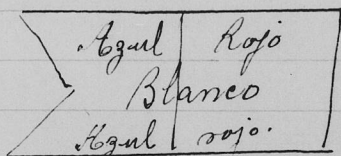 Azul Rojo
Blanco
Azul rojo.